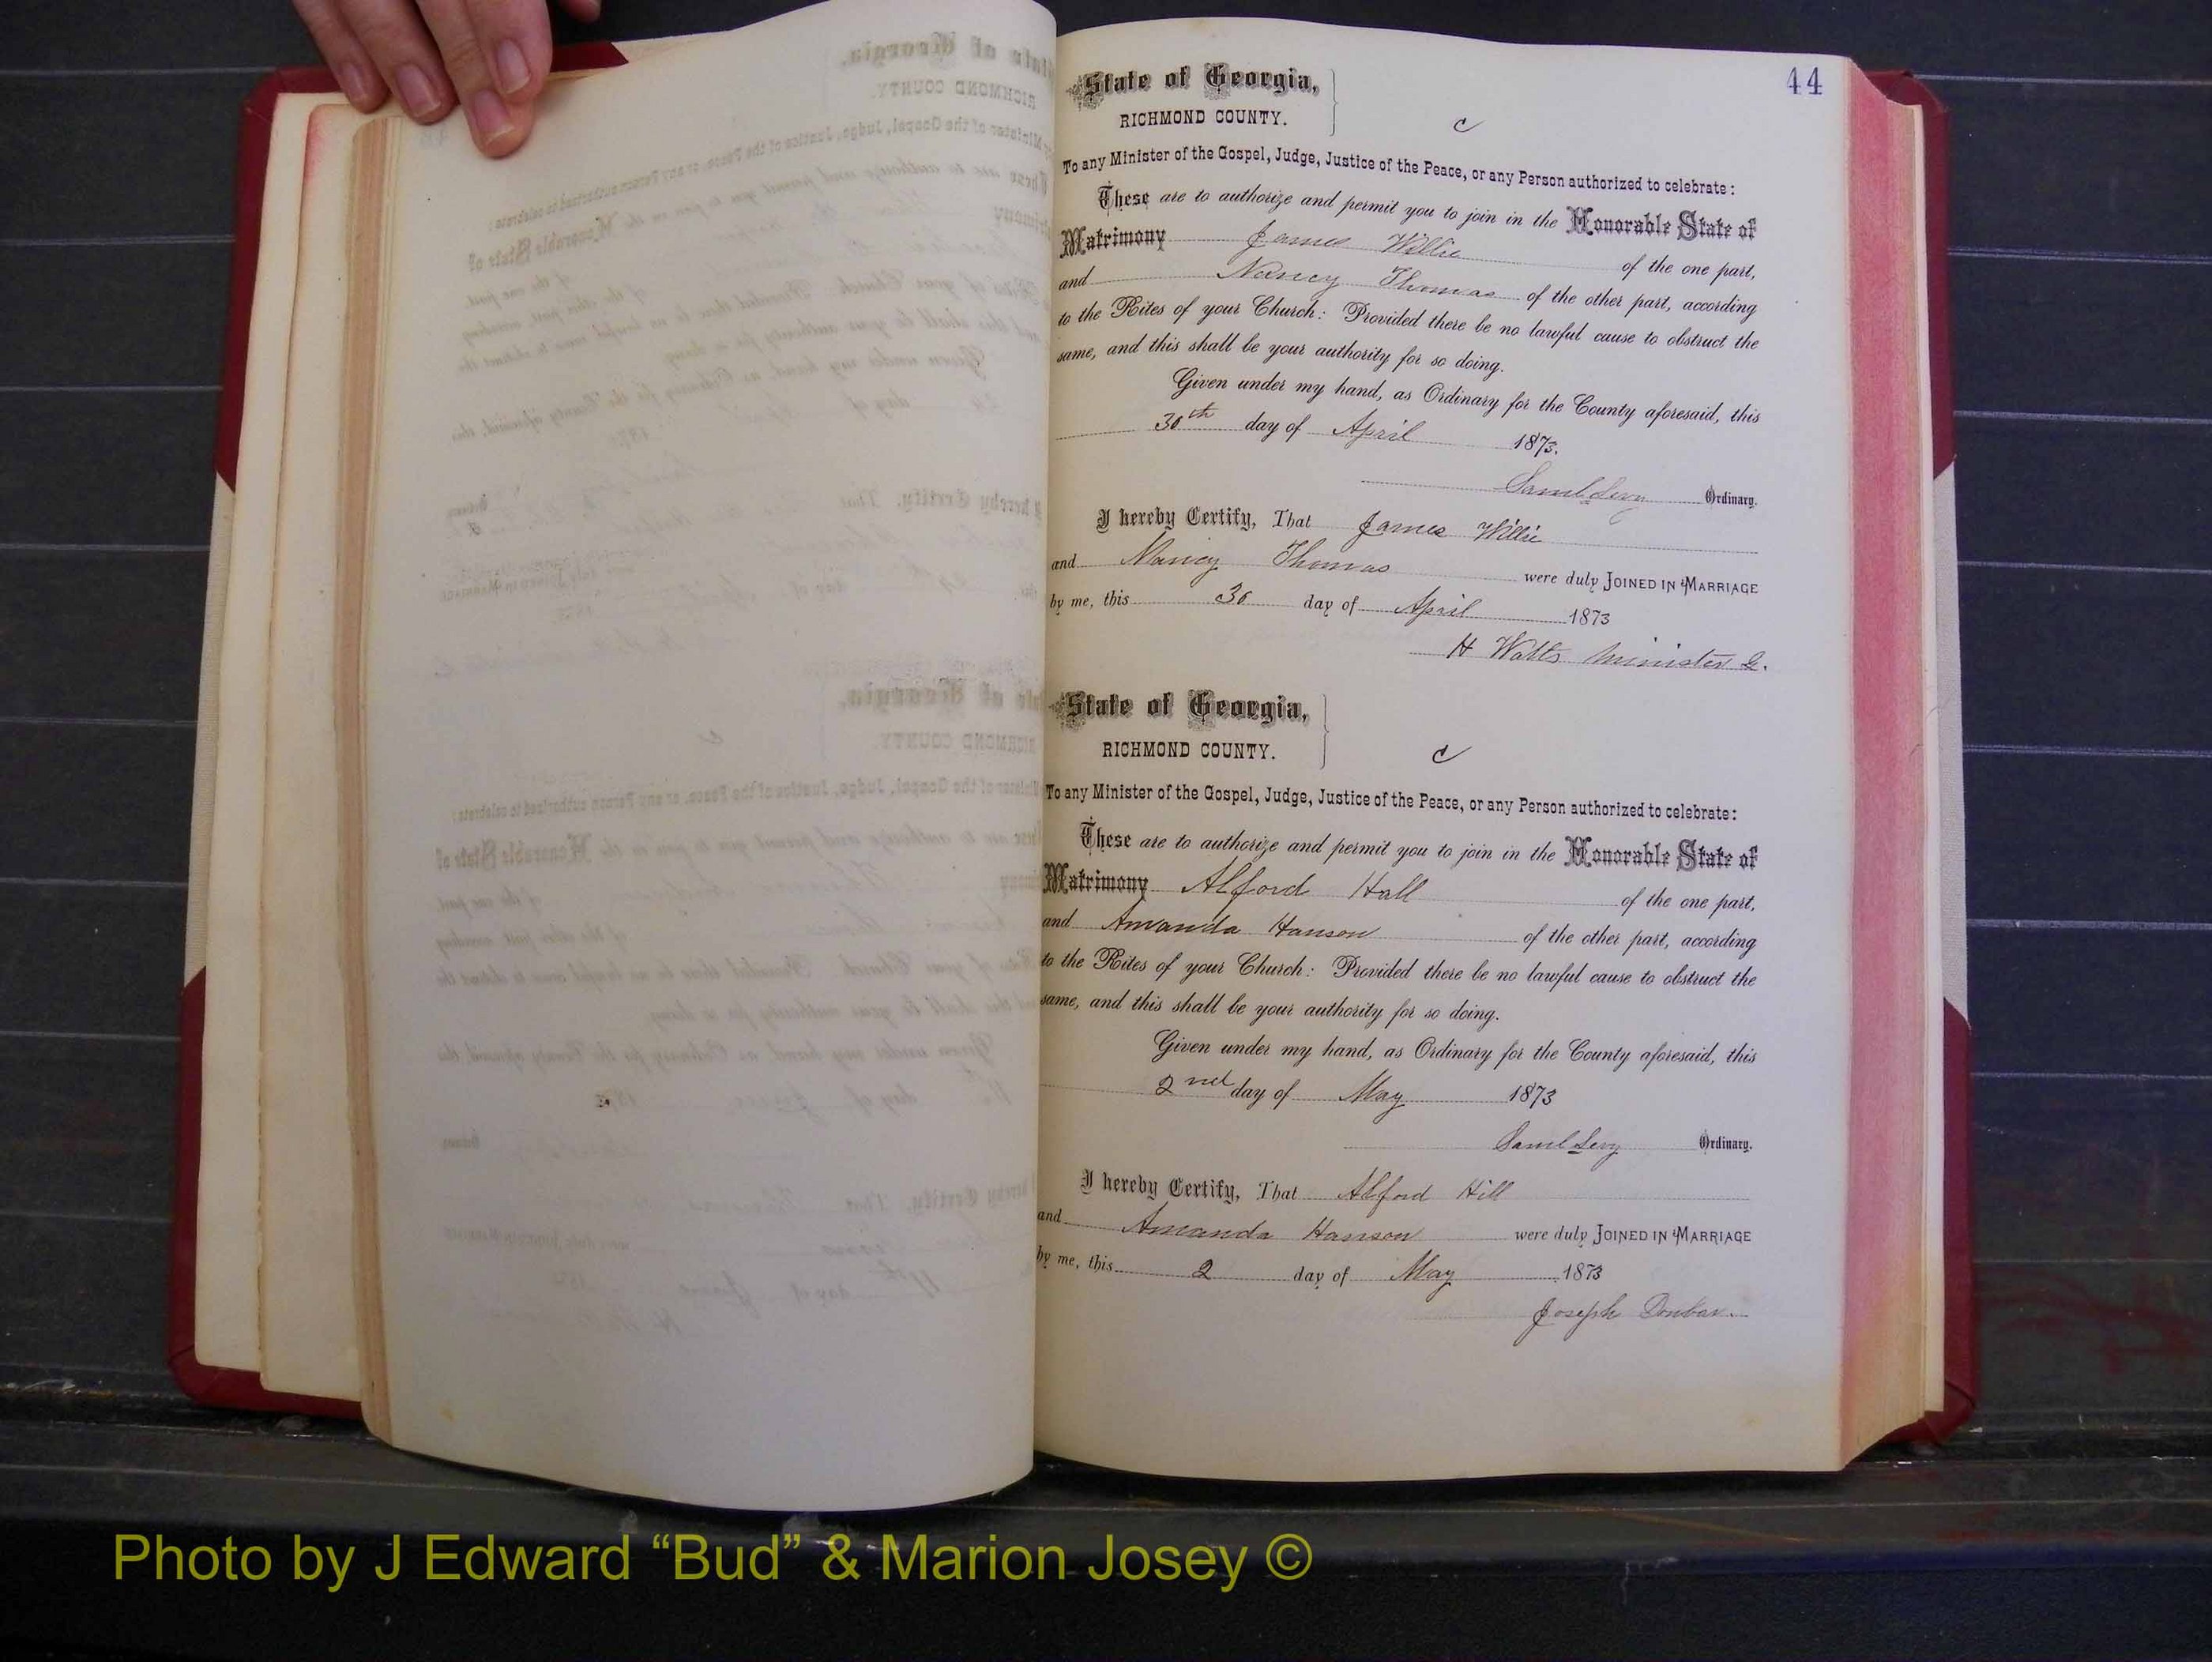 44
State of Georgia,
RICHMOND COUNTY.
c
To any Minister of the Gospel, Judge, Justice of the Peace, or any Person authorized to celebrate:
These are to authorize and permit you to join in the Honorable State of
Matrimony James Willie of the one part,
and Nancy Thomas of the other part, according
to the Rites of your Church: Provided there be no lawful cause to obstruct the
same, and this shall be your authority for so doing.
Given under my hand, as Ordinary for the County aforesaid, this
30th day of April 1873.
Saml Levy Ordinary.
I hereby Certify, That James Willie
and Nancy Thomas were duly JOINED IN MARRIAGE
by me, this 30 day of April 1873
H Watts Minister G.
State of Georgia,
RICHMOND COUNTY.
c
To any Minister of the Gospel, Judge, Justice of the Peace, or any Person authorized to celebrate:
These are to authorize and permit you to join in the Honorable State of
Matrimony Alford Hall of the one part,
and Amanda Hanson of the other part, according
to the Rites of your Church: Provided there be no lawful cause to obstruct the
same, and this shall be your authority for so doing.
Given under my hand, as Ordinary for the County aforesaid, this
2nd day of May 1873
Saml Levy Ordinary.
I hereby Certify, That Alford Hill
and Amanda Hanson were duly JOINED IN MARRIAGE
by me, this 2 day of May 1873
Joseph Dunbar.
Photo by J Edward “Bud” & Marion Josey ©